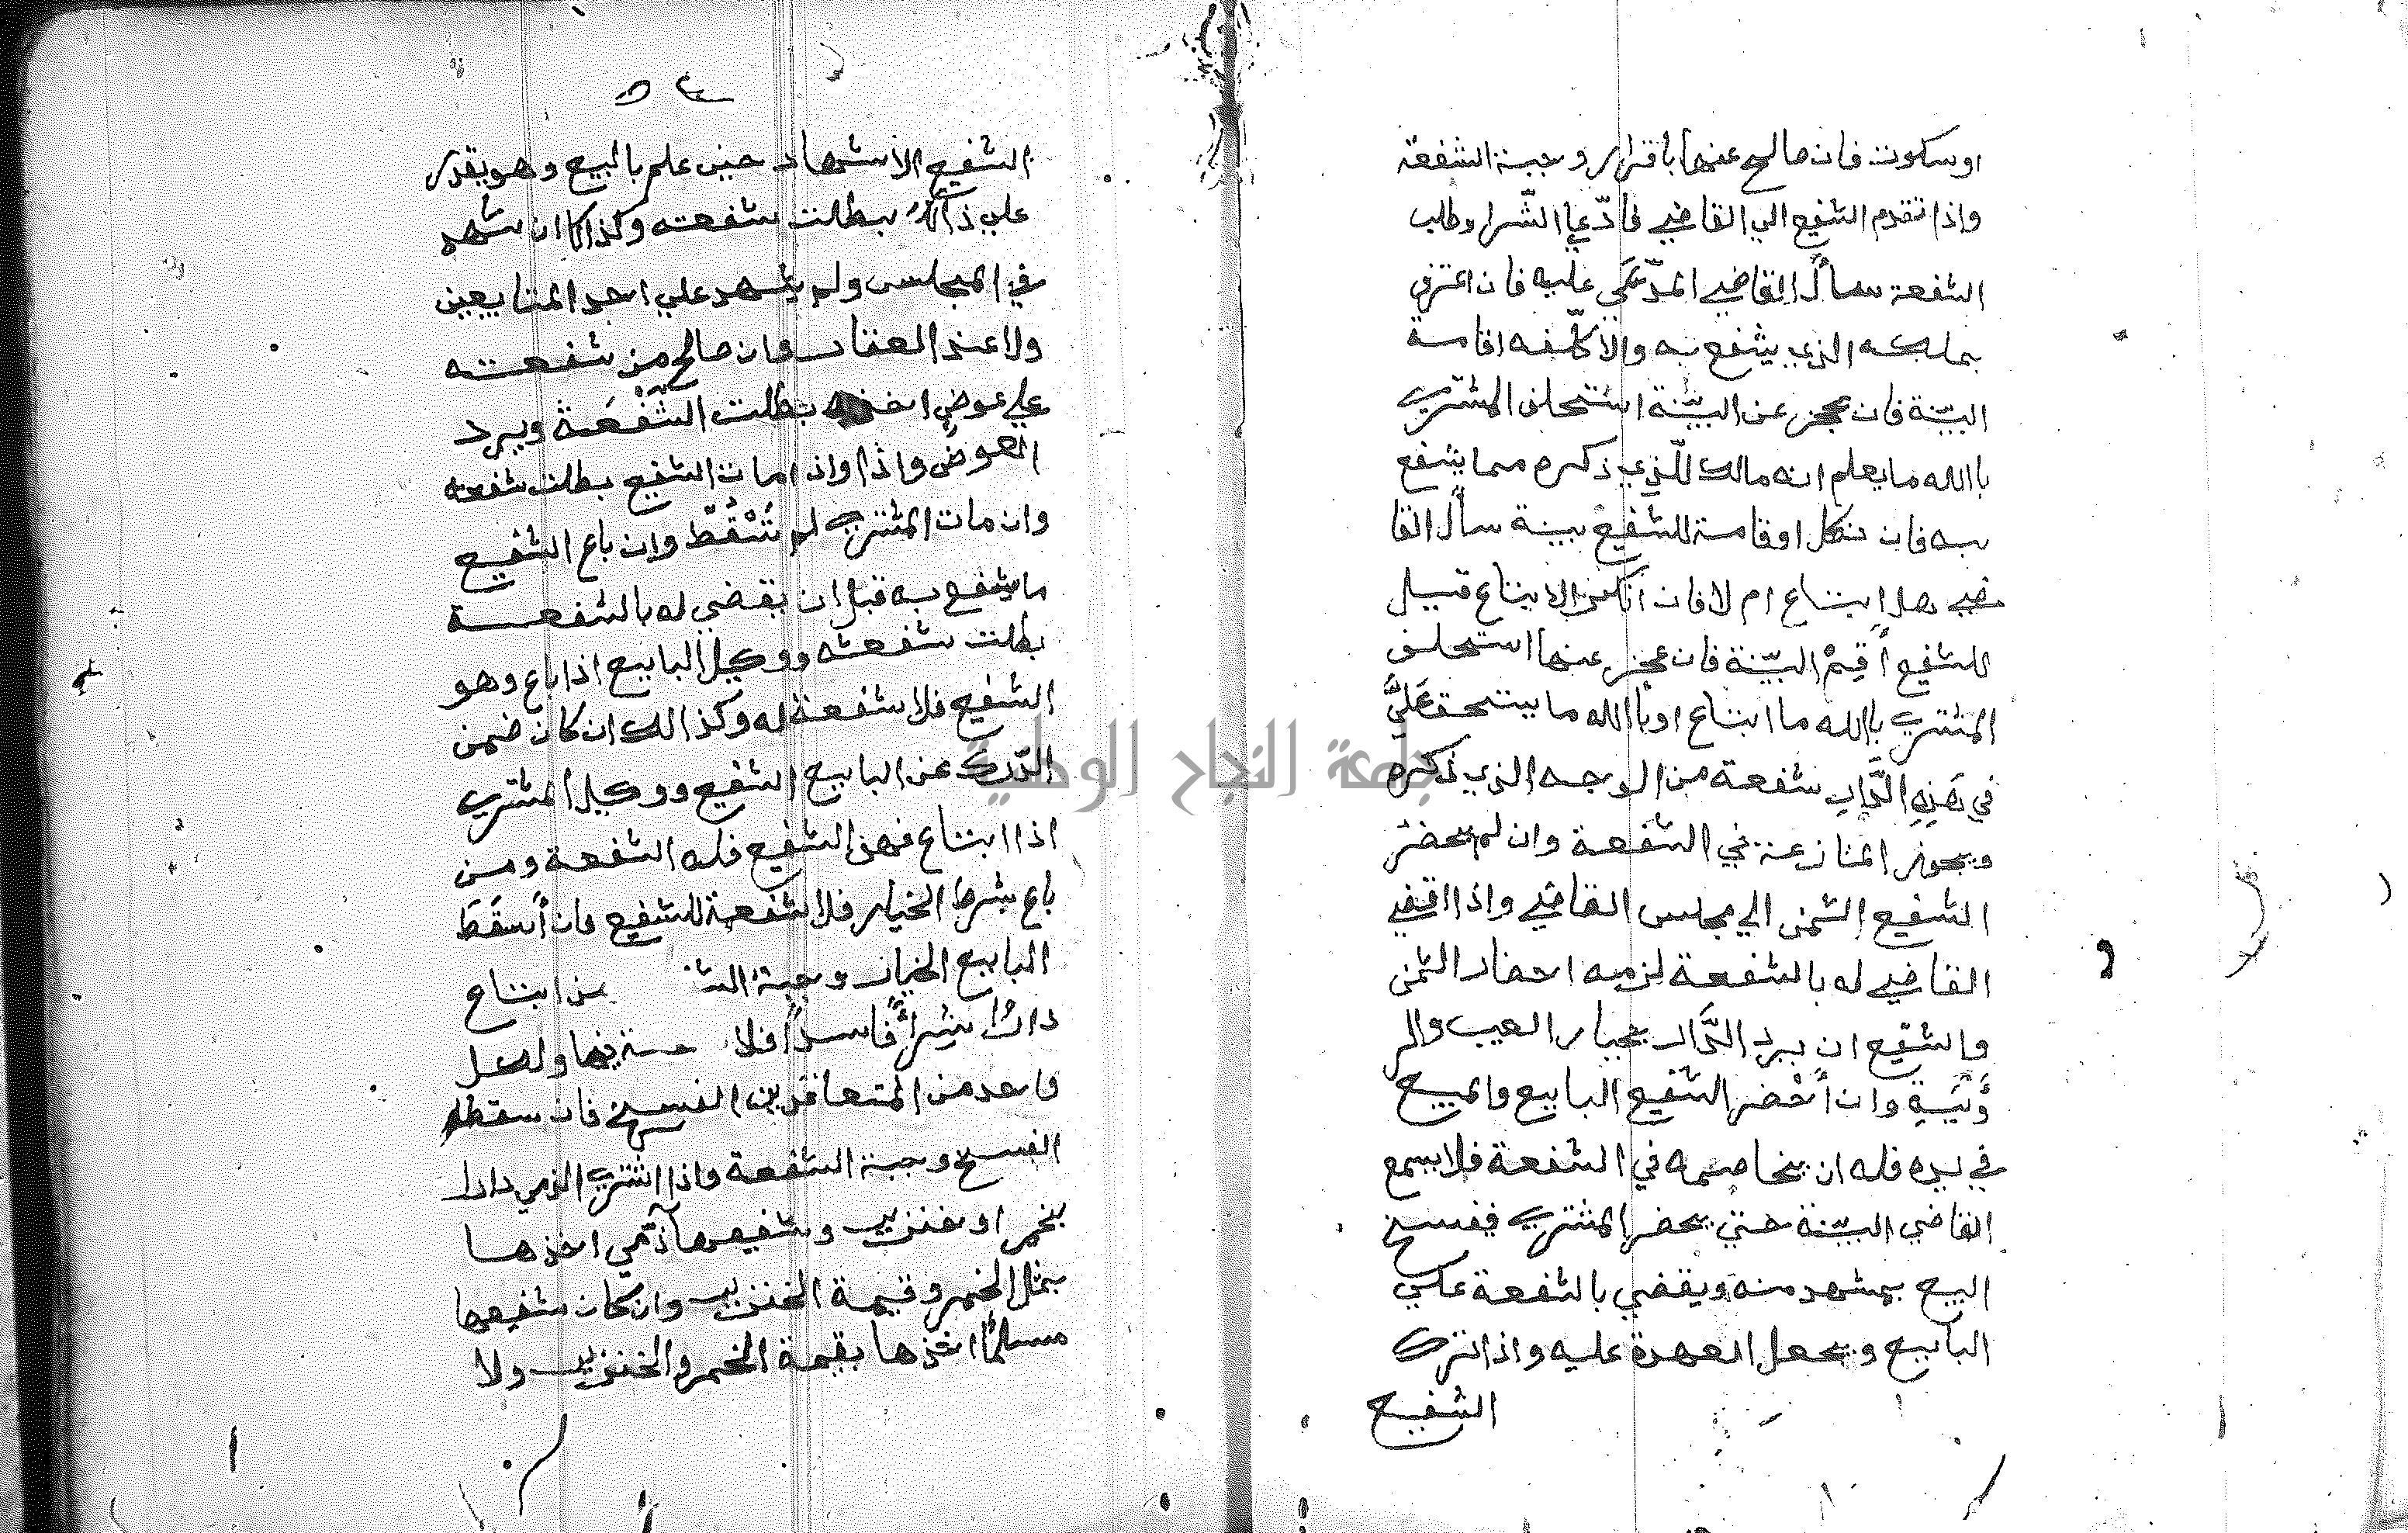 او سكوت فان صالح عنها باقرار وجبة الشفعة
واذا تقدم الشفيع الي القاضي فادّعي الشّرا وطلب
الشفعة سأل القاضي المدّعَي عليه فان اعترف
بملكه الذي يشفع به والا كلّفه اقامة
البيّنة فان عجز عن البيّنة استحلف المشتري
باالله ما يعلم انه مالك للّذي ذكره مما يشفع
به فان نكل او قامة للشفيع بينة سأل القا
ضي هل ابتاع ام لا فان انكر الابتاع قيل
للشفيع أَقِمْ البيّنة فان عجز عنها استحلف
المشتري باالله ما ابتاع او باالله ما يستحق عَليَّ
في هَذِهِ الدَّارِ شفعة من الوجه الذي ذكره
ويجوز المنازعة في الشفعة وان لم يحضر
الشفيع الثمن الي مجلس القاضي واذا اقضي
القاضي له بالشفعة لزمه احضار الثمن
والشفيع ان يرد الدَّار بخيار العيب والر
ؤْيَةِ وان أَحْضر الشفيع البايع والمبيع
في يده فله ان يخاصمه في الشفعة فلا يسمع
القاضي البيّنة حتي يحضر المشتري فيفسخ
البيع بمشهد منه ويقضي بالشفعة علي
البايع ويجعل العهدة عليه واذا ترك
الشفيع
٥٤
الشفيع الاشهاد حين علم بالبيع وهو يقدر
علي ذالك بطلت شفعته وكذالك ان شهد
في المجلس ولم يشهد علي احد المتابعين
ولا عند العقار فان صالح من شفعته
علي عوض اخذه بطلت الشُّفْعَة ويرد
العوض واذا واذا مات الشفيع بطلت شفعته
وان مات المشتري لم تَسْقُطْ وان باع الشفيع
ما يشفع به قبل ان يقضي له بالشفعة
بطلت شفعته ووكيل البايع اذا باع وهو
الشفيع فلا شفعة له وكذالك ان كان ضمن
الدّرك عن البايع الشفيع ووكيل المشتري
اذا ابتاع فهو الشفيع فله الشفعة ومن
باع بشرط الخيار فلا شفعة للشفيع فان أَسقَطَ
البايع الخيار وجبة الشف من ابتاع
دارًا بشراًّ فاسداً فلا فيها ولكل
واحد من المتعاقدين الفسخ فان سقطه
الفسخ وجبة الشفعة واذا اشتري الذمي دارا
بخمر او خنزير وشفيعها ذمّي اخذها
بمثل الخمر وقيمة الخنزير وان كان شفيعها
مسلمًا اخذها بقيمة الخمر والخنزير ولا
جامعة النجاح الوطنية